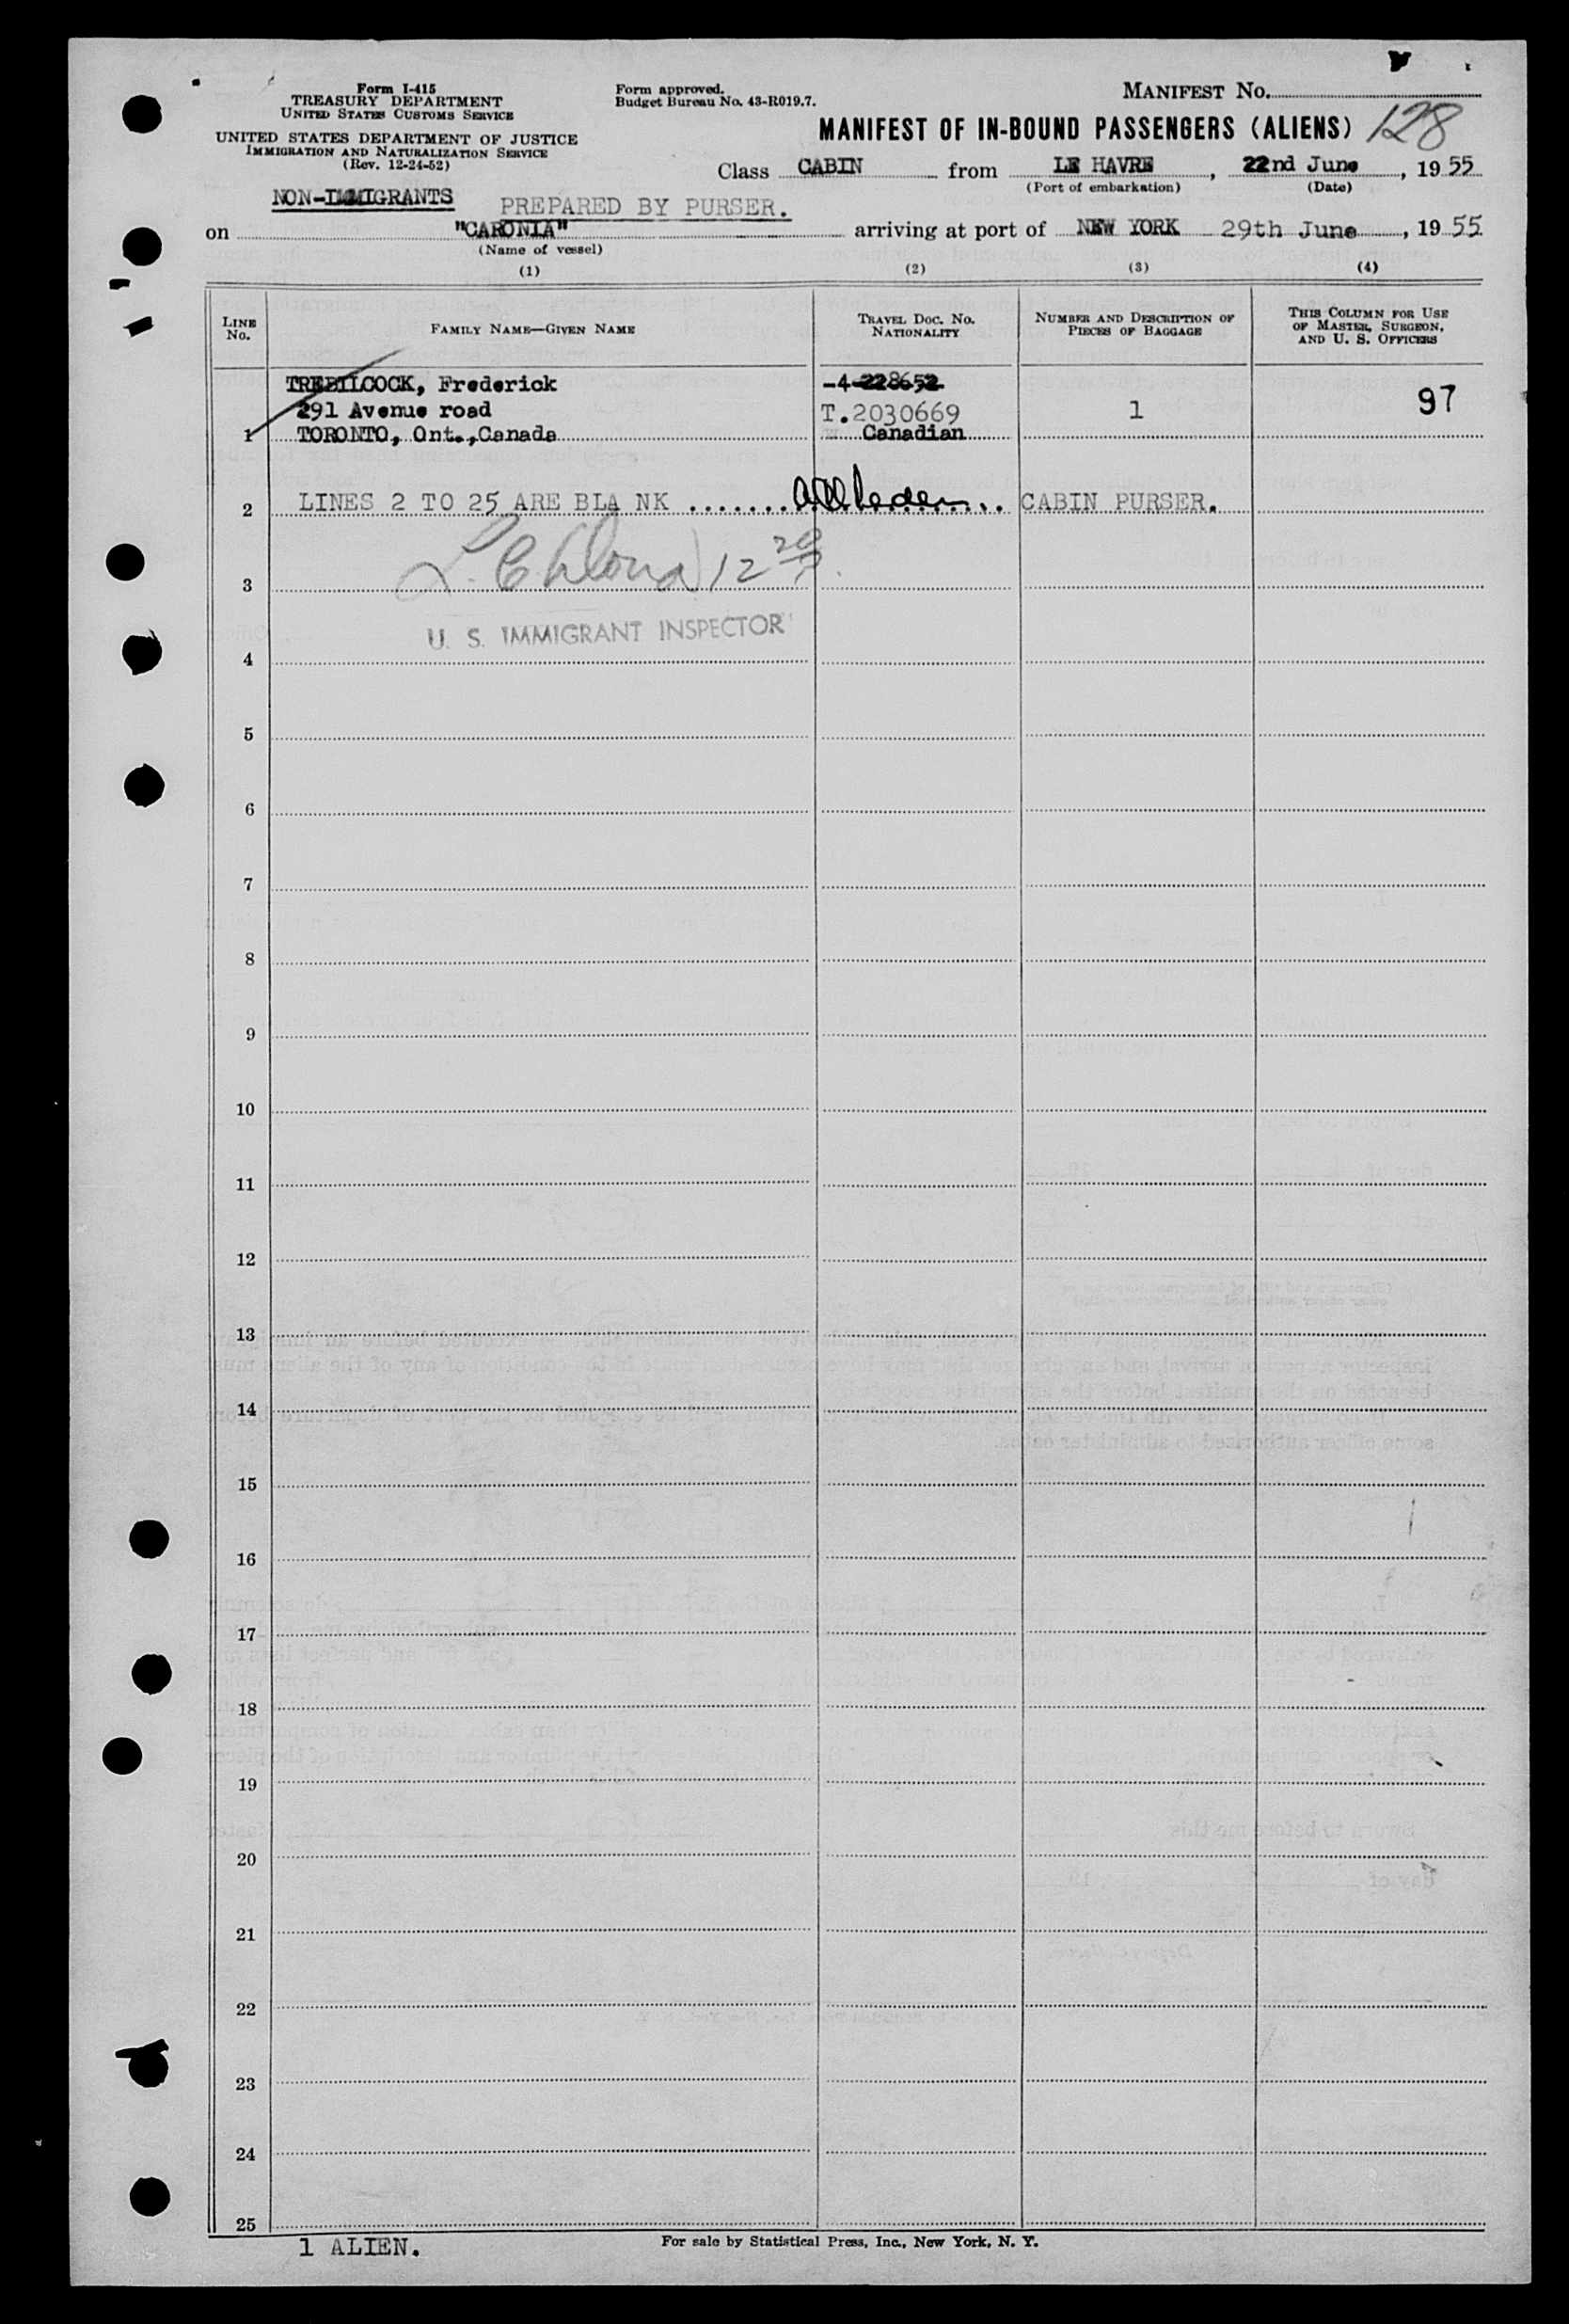 Form I-415
TREASURY DEPARTMENT
UNITED STATES CUSTOMS SERVICE
UNITED STATES DEPARTMENT OF JUSTICE
IMMIGRATION AND NATURALIZATION SERVICE
(Rev. 12-24-52)
Form approved.
Budget Bureau No. 43-R019.7.
MANIFEST NO.
MANIFEST OF IN-BOUND PASSENGERS (ALIENS) 128
Class CABIN from LE HAVRE, 22nd June, 1955
(Port of embarkation) (Date)
NON-IMMIGRANTS PREPARED BY PURSER.
on "CARONIA" arriving at port of NEW YORK 29th June, 1955
(Name of vessel)
(1) (2) (3) (4)
LINE NO. FAMILY NAME—GIVEN NAME TRAVEL DOC. NO. NATIONALITY NUMBER AND DESCRIPTION OF PIECES OF BAGGAGE THIS COLUMN FOR USE OF MASTER, SURGEON, AND U. S. OFFICERS
TREBILCOCK, Frederick -4-228652
291 Avenue road T.2030669 1 97
1 TORONTO, Ont.,Canada Canadian
2 LINES 2 TO 25 ARE BLA NK ....... CABIN PURSER.
3
U. S. IMMIGRANT INSPECTOR
4
5
6
7
8
9
10
11
12
13
14
15
16
17
18
19
20
21
22
23
24
25
1 ALIEN. For sale by Statistical Press, Inc., New York, N. Y.